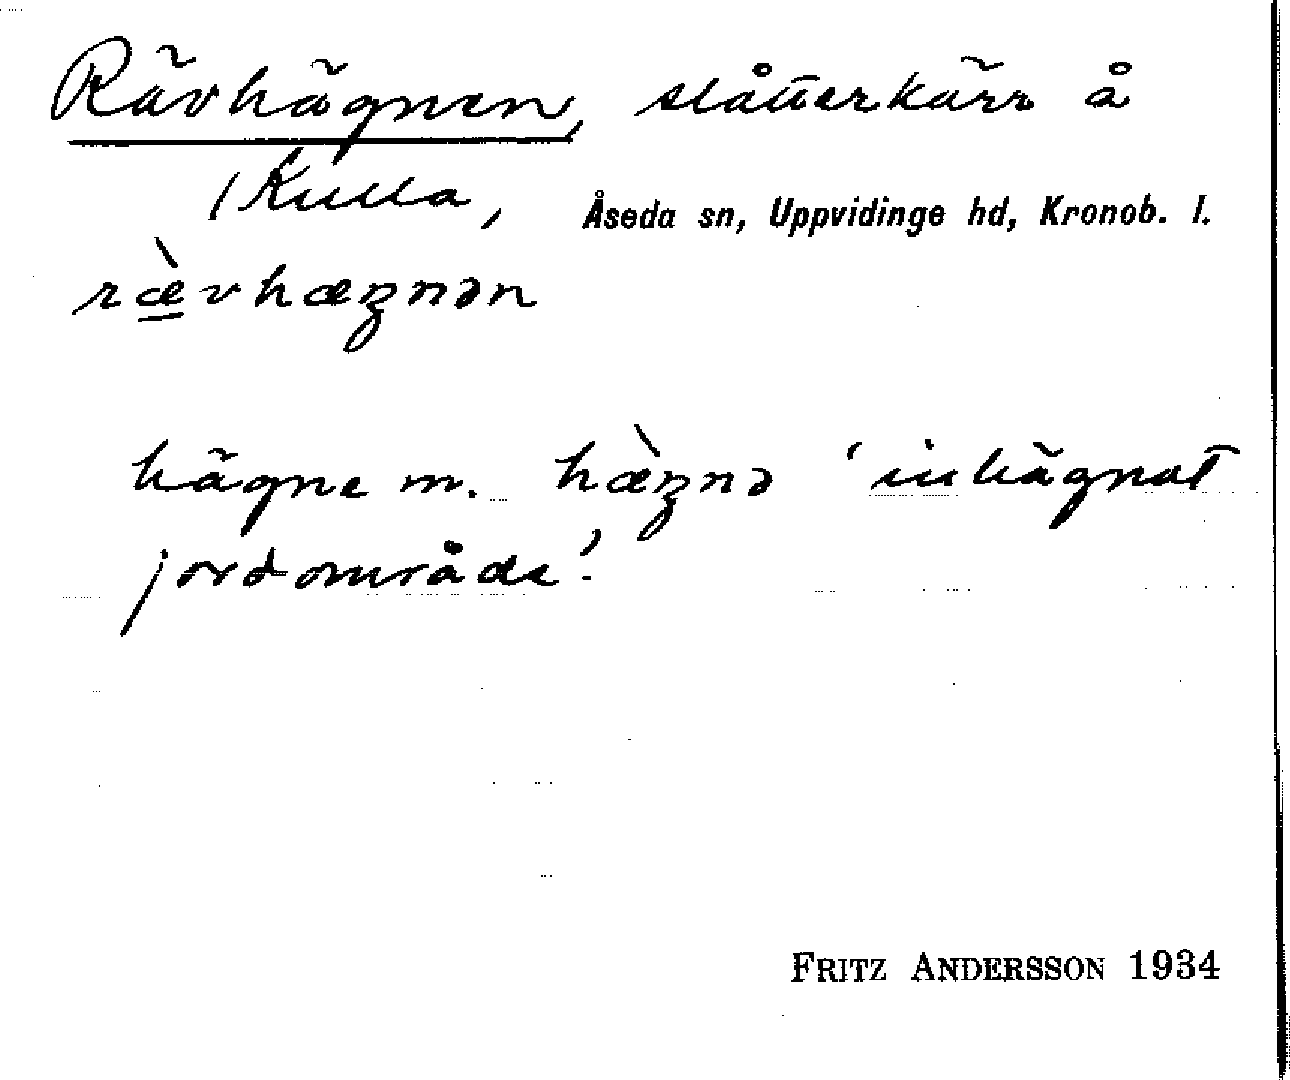 Rävhägnen, slåtterkärr å
Kulla, Åseda sn, Uppvidinge hd, Kronob. l.
ræ̀vhægnən
hägne m. hæ̀gnə 'inhägnat
jordområde'.
FRITZ ANDERSSON 1934